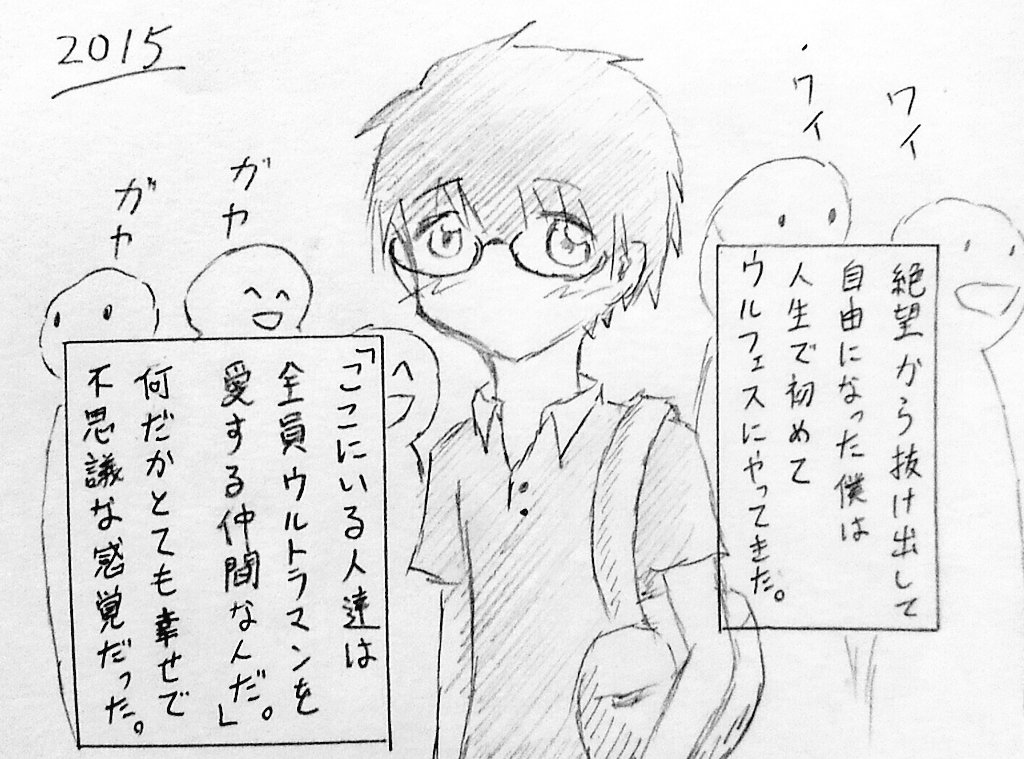 2015
ワイ
ワイ
絶望から抜け出して
自由になった僕は
人生で初めて
ウルフェスにやってきた。
ガヤ
ガヤ
「ここにいる人達は
全員ウルトラマンを
愛する仲間なんだ。」
何だかとても幸せで
不思議な感覚だった。